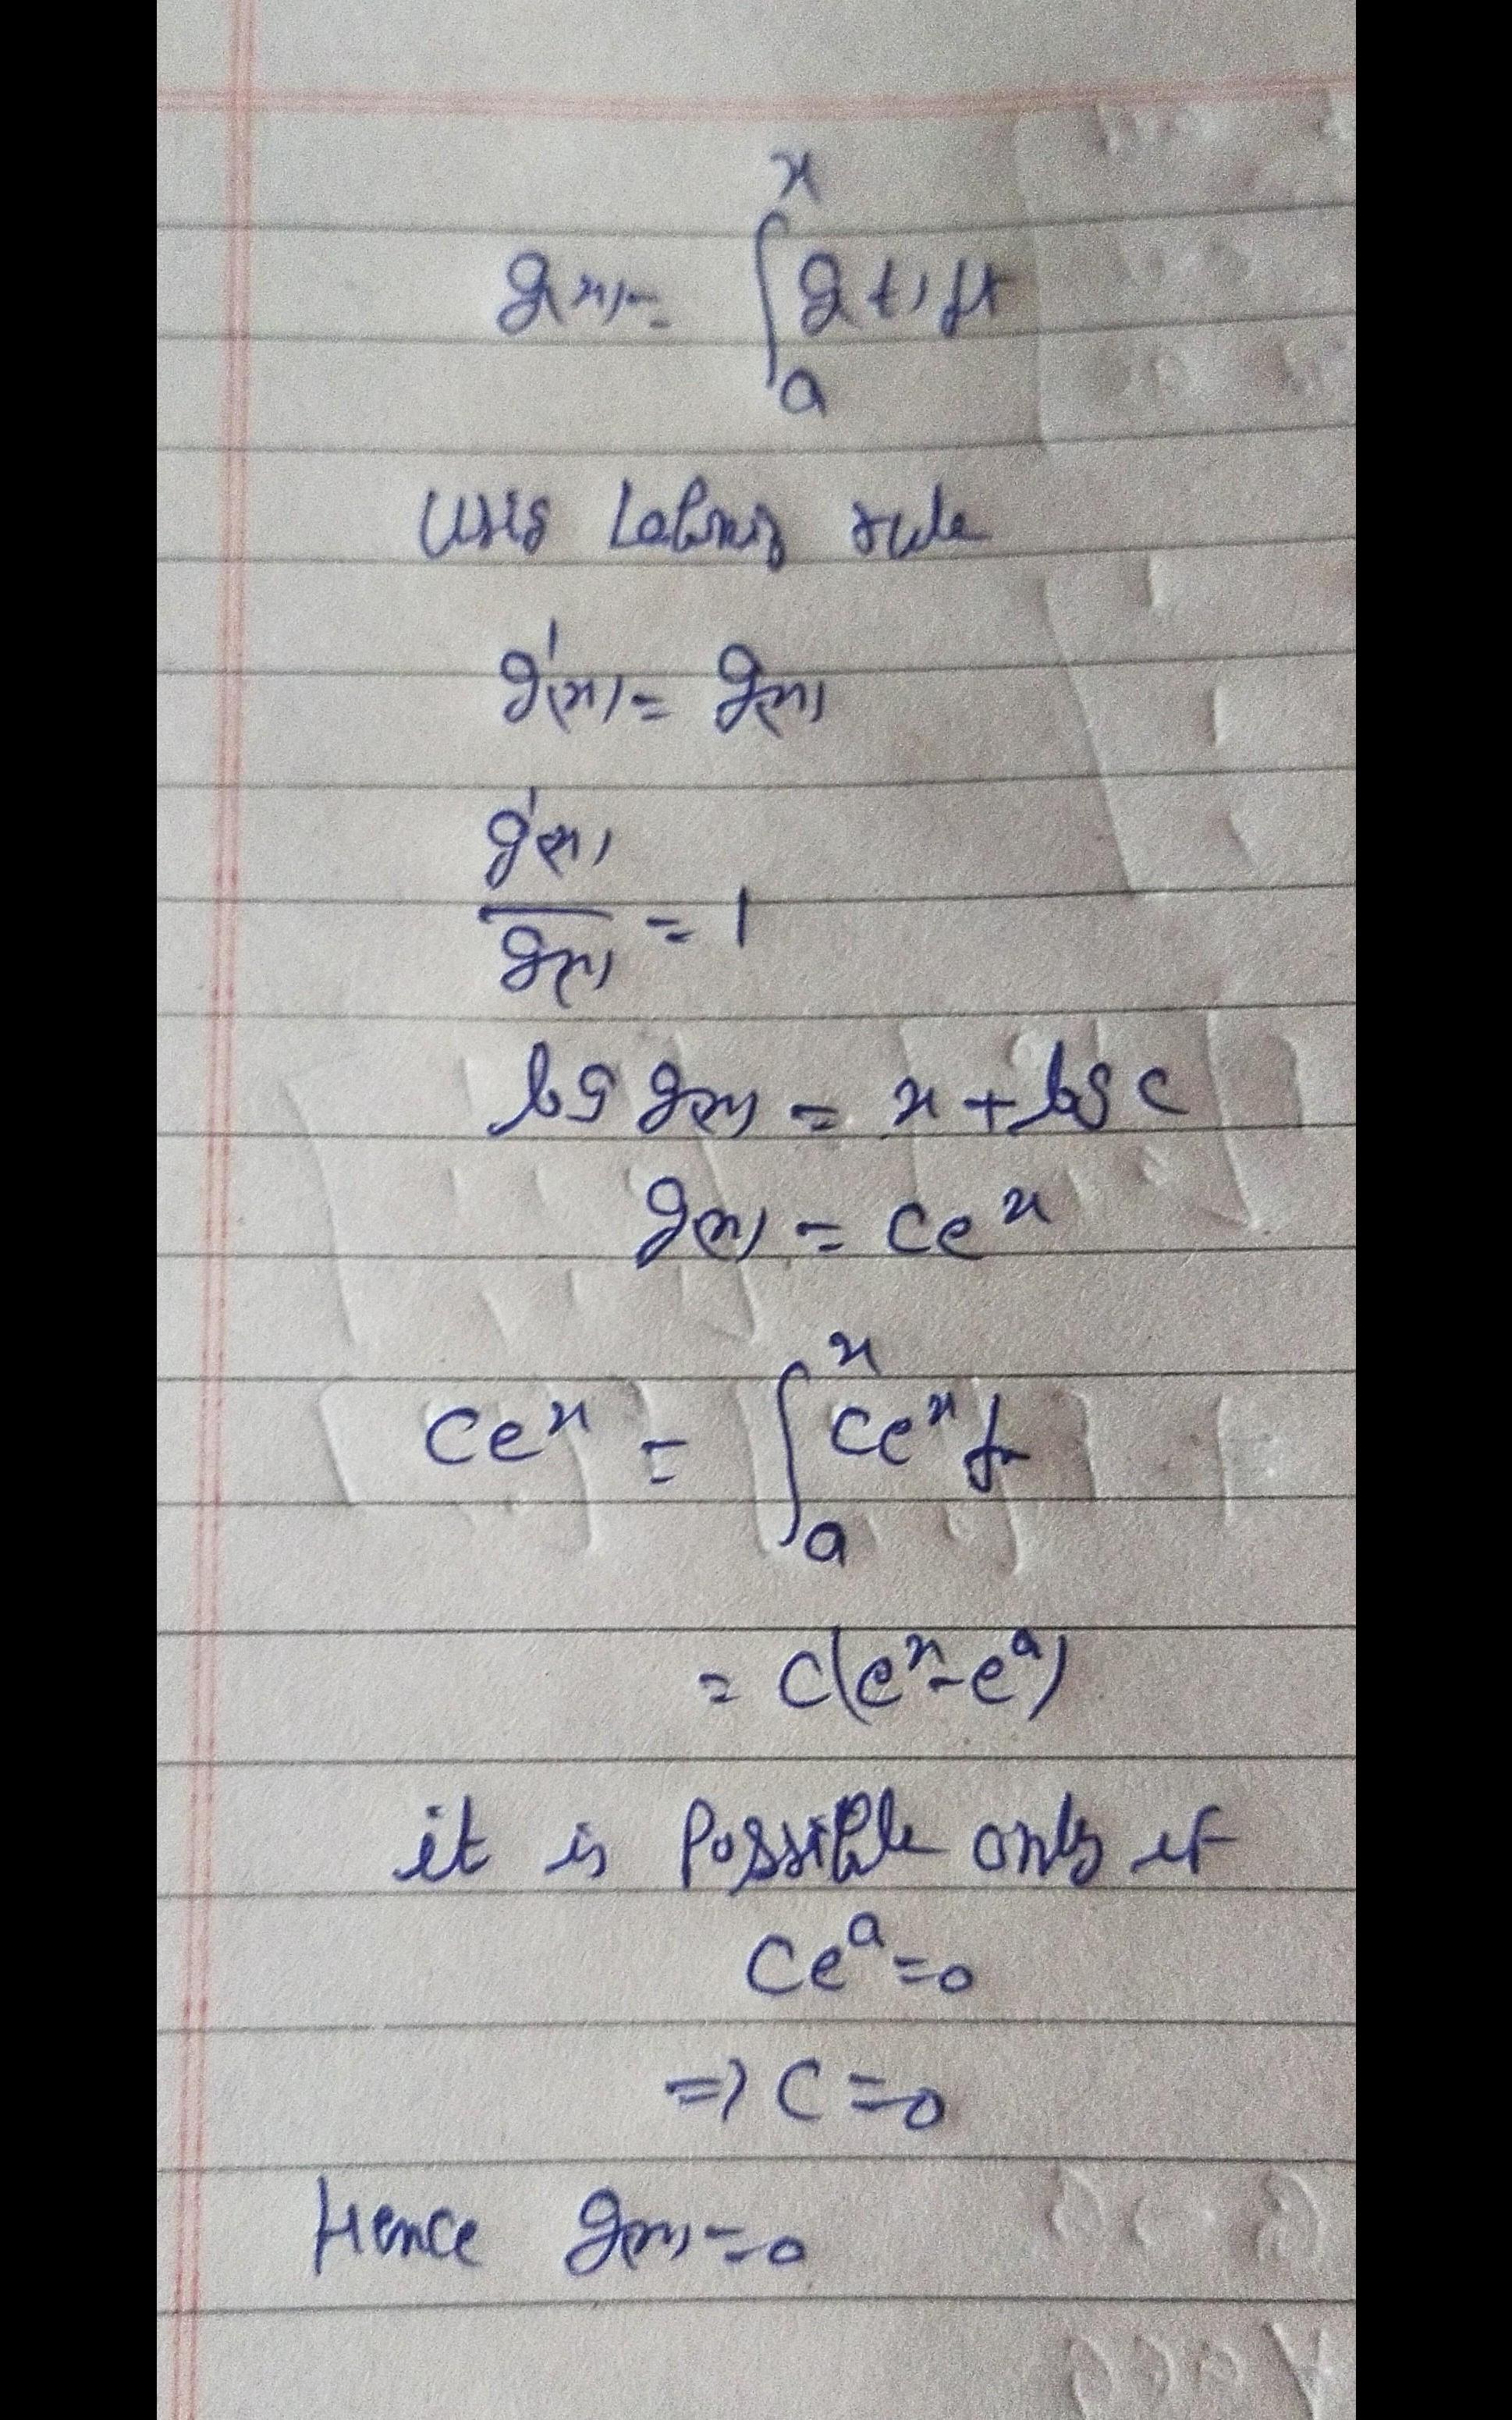 g(x) = ∫ₐˣ g(t) dt
Using Leibniz rule
g'(x) = g(x)
g'(x)/g(x) = 1
log g(x) = x + log c
g(x) = ceˣ
Ceˣ = ∫ₐˣ Ceˣ dx
= C(eˣ - eᵃ)
it is possible only if
Ceᵃ = 0
=> C = 0
Hence g(x) = 0